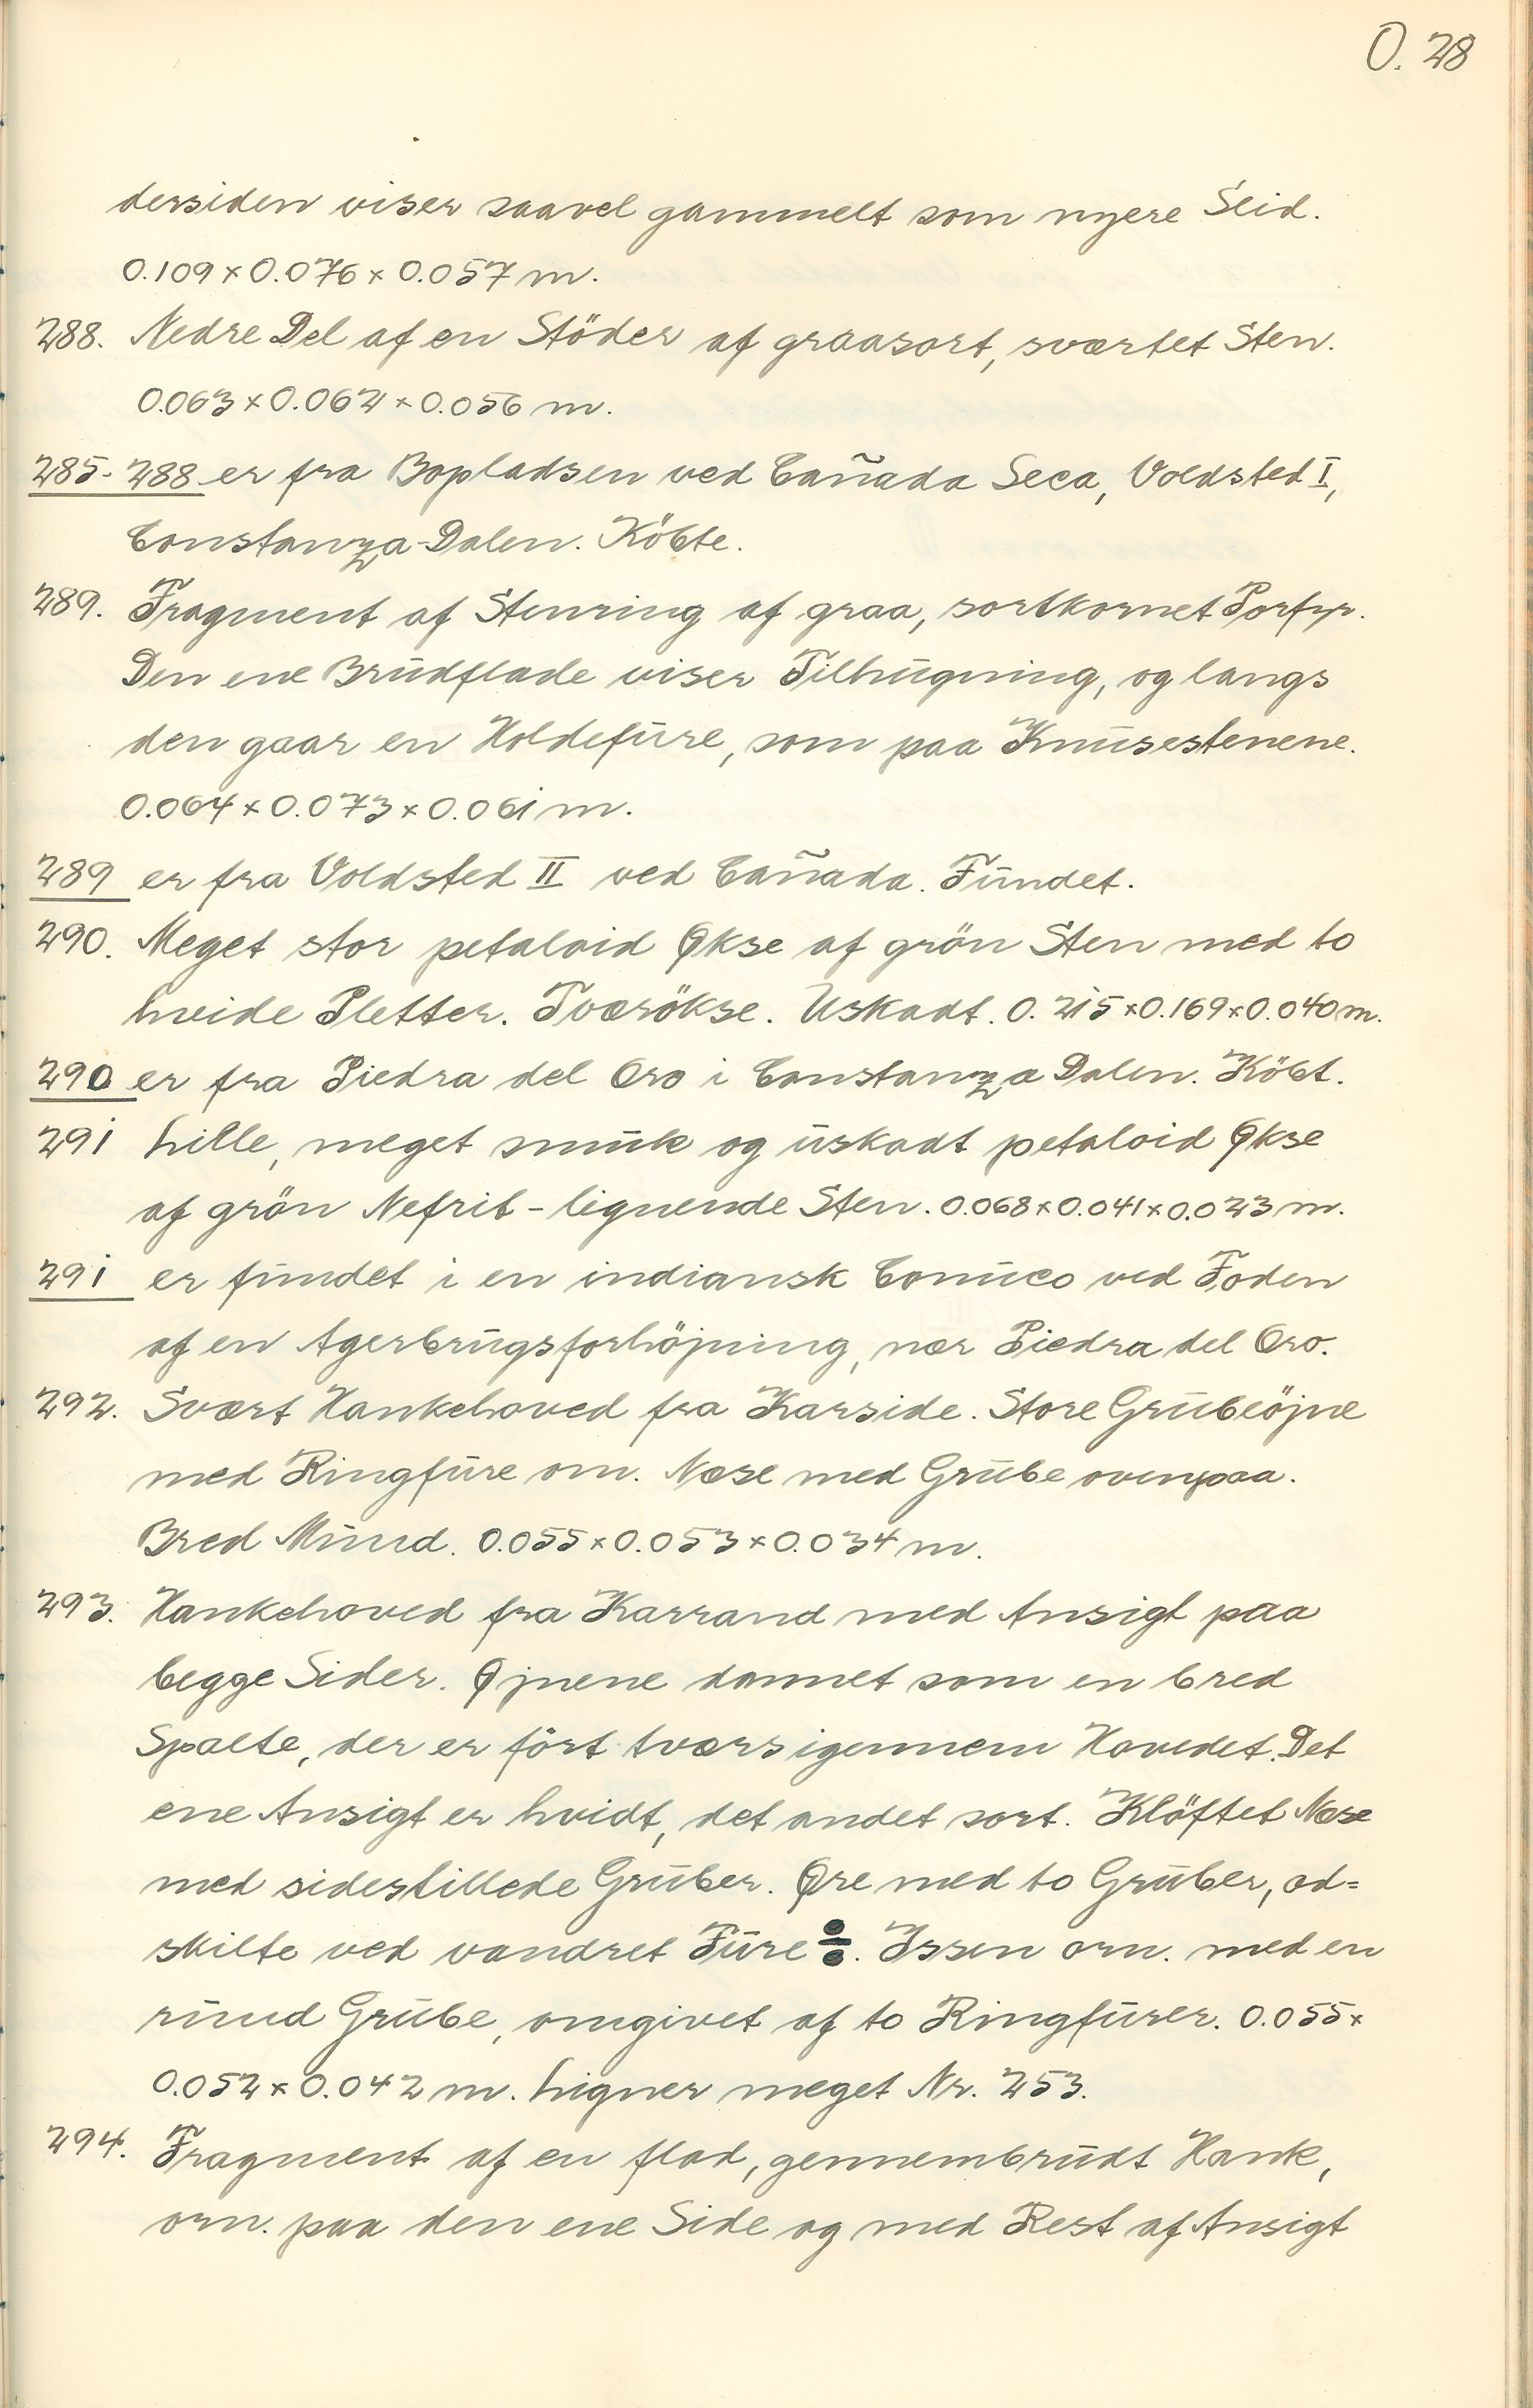 O. 28
dersiden viser saavel gammelt som nyere Slid.
0.109 x 0.076 x 0.057 m.
288. Nedre Del af en Stöder af graasort, sværtet Sten.
0.063 x 0.062 x 0.056 m.
285-288 er fra Bopladsen ved Cañada Seca, Voldsted I,
Constanza-Dalen. Köbte.
289. Fragment af Stenring af graa, sortkornet Porfyr.
Den ene Brudflade viser Tilhugning, og langs
den gaar en Holdefure, som paa Knusestenene.
0.064 x 0.073 x 0.061 m.
289 er fra Voldsted II ved Cañada. Fundet.
290. Meget stor petaloid Økse af grön Sten med to
hvide Pletter. Tværökse. Uskadt. 0.215 x 0.169 x 0.040 m.
290 er fra Piedra del Oro i Constanza Dalen. Köbt.
291 Lille, meget smuk og uskadt petaloid Økse
af grön Nefrit-lignende Sten. 0.068 x 0.041 x 0.023 m.
291 er fundet i en indiansk Conuco ved Foden
af en Agerbrugsforhöjning, nær Piedra del Oro.
292. Svært Hankehoved fra Karside. Store Grubeöjne
med Ringfure om. Næse med Grube ovenpaa.
Bred Mund. 0.055 x 0.053 x 0.034 m.
293. Hankehoved fra Karrand med Ansigt paa
begge Sider. Øjnene dannet som en bred
Spalte, der er fört tværs igennem Hovedet. Det
ene Ansigt er hvidt, det andet sort. Klöftet Næse
med sidestillede Gruber. Øre med to Gruber, ad=
skilte ved vandret Fure ÷. Issen orn. med en
rund Grube, omgivet af to Ringfurer. 0.055 x
0.052 x 0.042 m. Ligner meget Nr. 253.
294. Fragment af en flad, gennembrudt Hank,
orn. paa den ene Side og med Rest af Ansigt